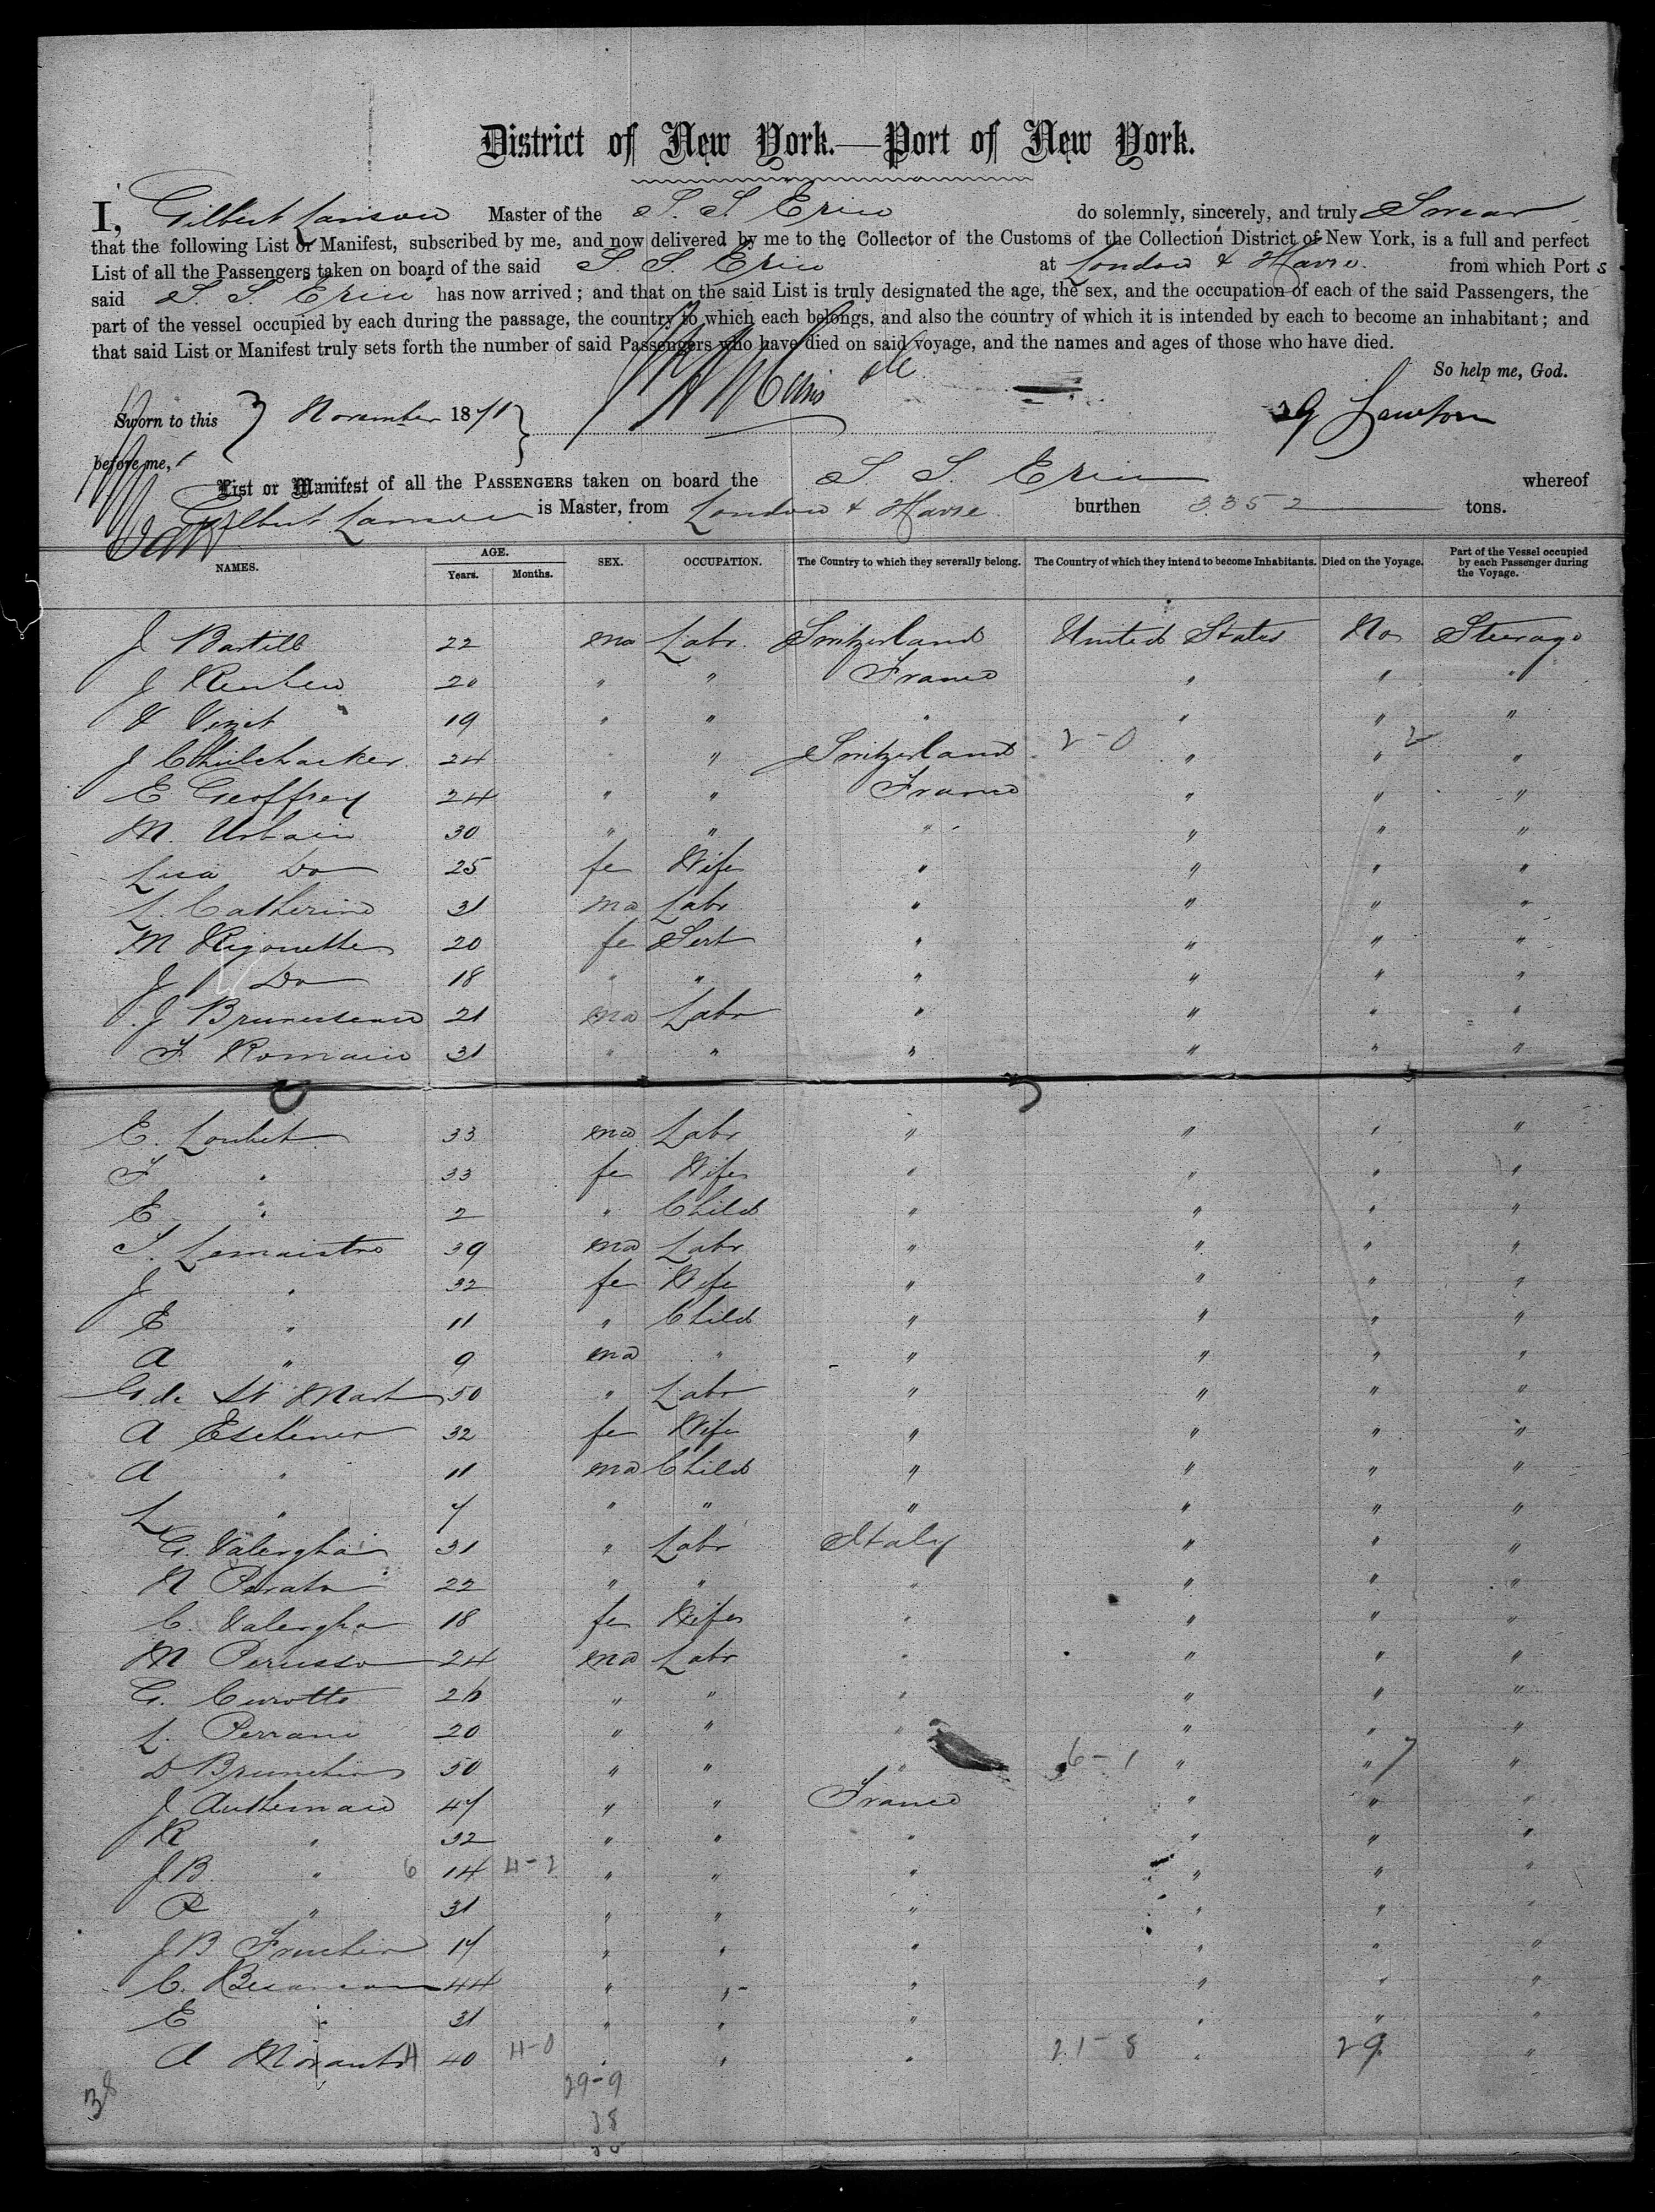 District of New York.—Port of New York.
I, Gilbert Master of the S. S. Erin do solemnly, sincerely, and truly Swear
that the following List or Manifest, subscribed by me, and now delivered by me to the Collector of the Customs of the Collection District of New York, is a full and perfect
List of all the Passengers taken on board of the said S. S. Erin at London & Havre. from which Ports
said S. S. Erin has now arrived; and that on the said List is truly designated the age, the sex, and the occupation of each of the said Passengers, the
part of the vessel occupied by each during the passage, the country to which each belongs, and also the country of which it is intended by each to become an inhabitant; and
that said List or Manifest truly sets forth the number of said Passengers who have died on said voyage, and the names and ages of those who have died.
So help me, God.
Sworn to this November 1871
before me,
List or Manifest of all the PASSENGERS taken on board the S. S. Erin whereof
Gilbert is Master, from London & Havre burthen 3352 tons.
NAMES. AGE. Years. Months. SEX. OCCUPATION. The Country to which they severally belong. The Country of which they intend to become Inhabitants. Died on the Voyage. Part of the Vessel occupied by each Passenger during the Voyage.
J 22 ma Labr. Switzerland United States No Steerage
J Reuben 20 " " France " " "
V Vinet 19 " " " " " "
J 24 " Switzerland 2-0 " " 2 "
E Geoffrey 24 " " France " " "
M. Urbain 30 " " " " " "
Lisa Do 25 fe Wife " " " "
L. Catherine 31 ma Labr " " " "
M Rigonette 20 fe Sert " " " "
J Do 18 " " " " " "
J 21 ma Labr " " " "
F. Romain 31 " " " " " "
E. Loubet 33 ma Labr " " " "
F " 33 fe Wife " " " "
E " 2 " Child " " " "
S. Lemaistre 39 ma Labr " " " "
J " 32 fe Wife " " " "
E " 11 " Child " " " "
A " 9 ma " " " " "
G. de St Mart 50 " Labr " " " "
A 32 fe Wife " " " "
A " 11 ma Child " " " "
L " 7 " " " " " "
G. Valergha 31 " Labr Italy " " "
N Perato 22 " " " " " "
C. Valergha 18 fe Wife " " " "
M Perusso 24 ma Labr " " " "
G. Curotto 26 " " " " " "
L. Perrani 20 " " " " " "
D 50 " " " 6-1 " " 7 "
J 47 " " France " " "
R " 32 " " " " " "
J B " 6 14 4-2 " " " " " "
P " 31 " " " " " "
J B 17 " " " " " "
C. Besancon 44 " " " " " "
E " 31 " " " " " "
A 4 40 4-0 " " " 21-8 " 29 "
38 29-9
38